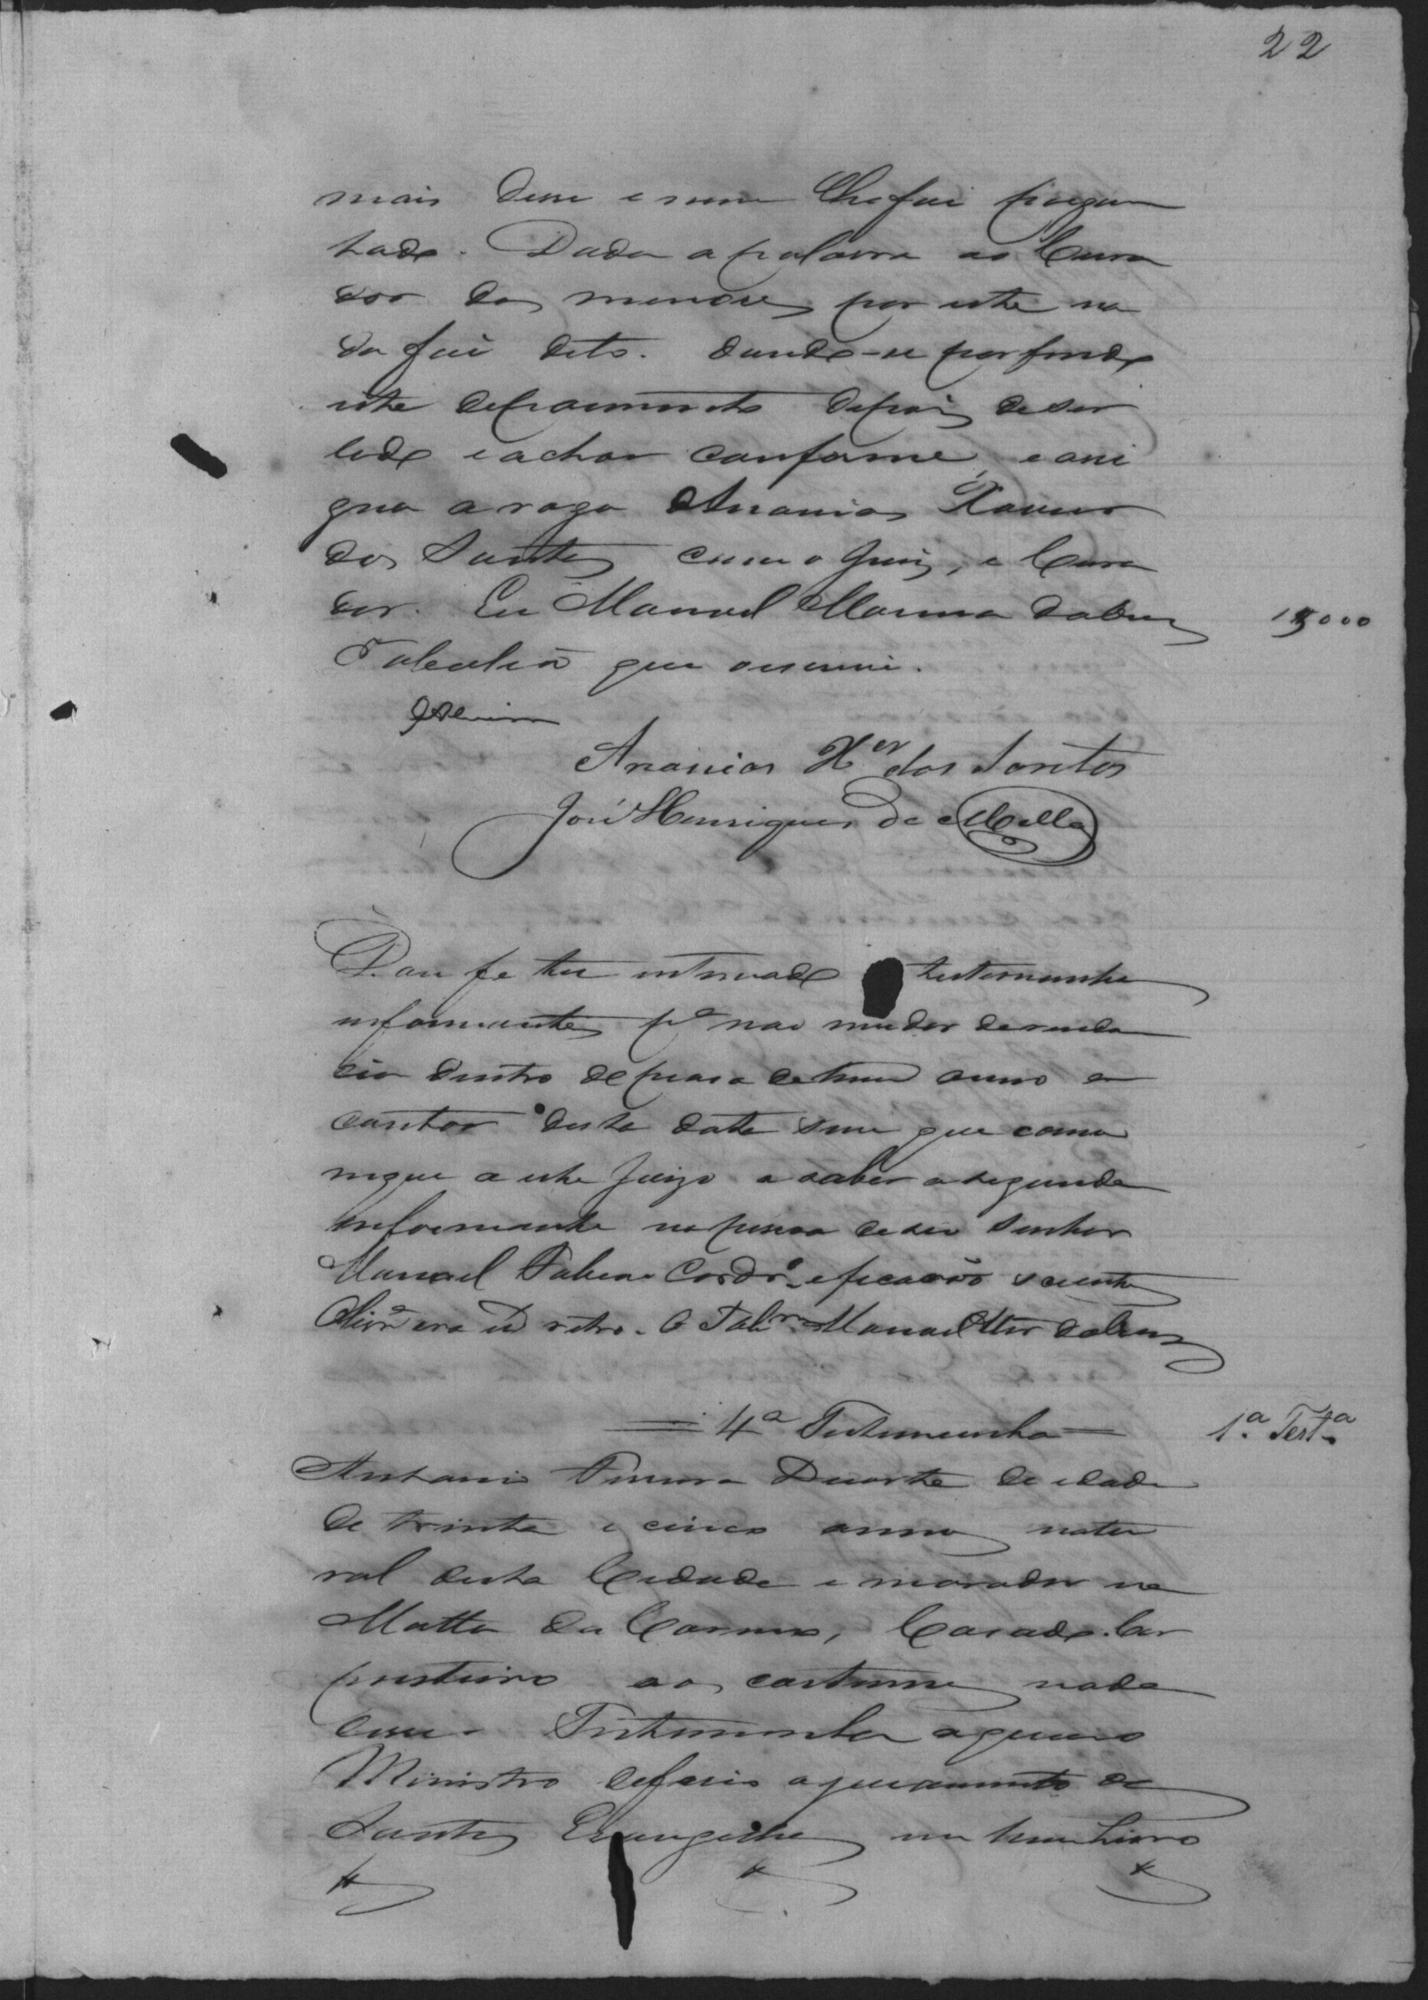 22
mais disse e nem lhe foi pergun
tado. Dada a palavra ao Cura
dor dos menores por este na
da foi dito. dando-se por findo
este depoimento depois de ser
lido e achar conforme, e assi
gna a rogo Ananias Xavier
dos Santos com o Juiz, e Cura
dor. Eu Manoel Marinno da Cruz
15000
Tabelião que escrevi.
Ananias Xer dos Santos
José Henriques de Mello
Dou fe ter intimado testemunhas
informantes pa nao mudar de residen
cia dentro do praso de hum anno a
contar desta data sem que comu
nique a este Juizo a saber a segunda
informante na pessoa de seu Senhor
Manoel Cordro e ficarão scientes
era ut retro. O Tabam Manoel da Cruz
= 4a Testemunha =
1a Testa
Antonio Duarte de idade
de trinta e cinco annos natu
ral desta Cidade e morador na
Matta do Carmo, Casado. Car
pinteiro aos costumes nada
disse. Testemunha a quem o
Ministro deferio o juramento dos
Santos Evangelhos em hum Livro